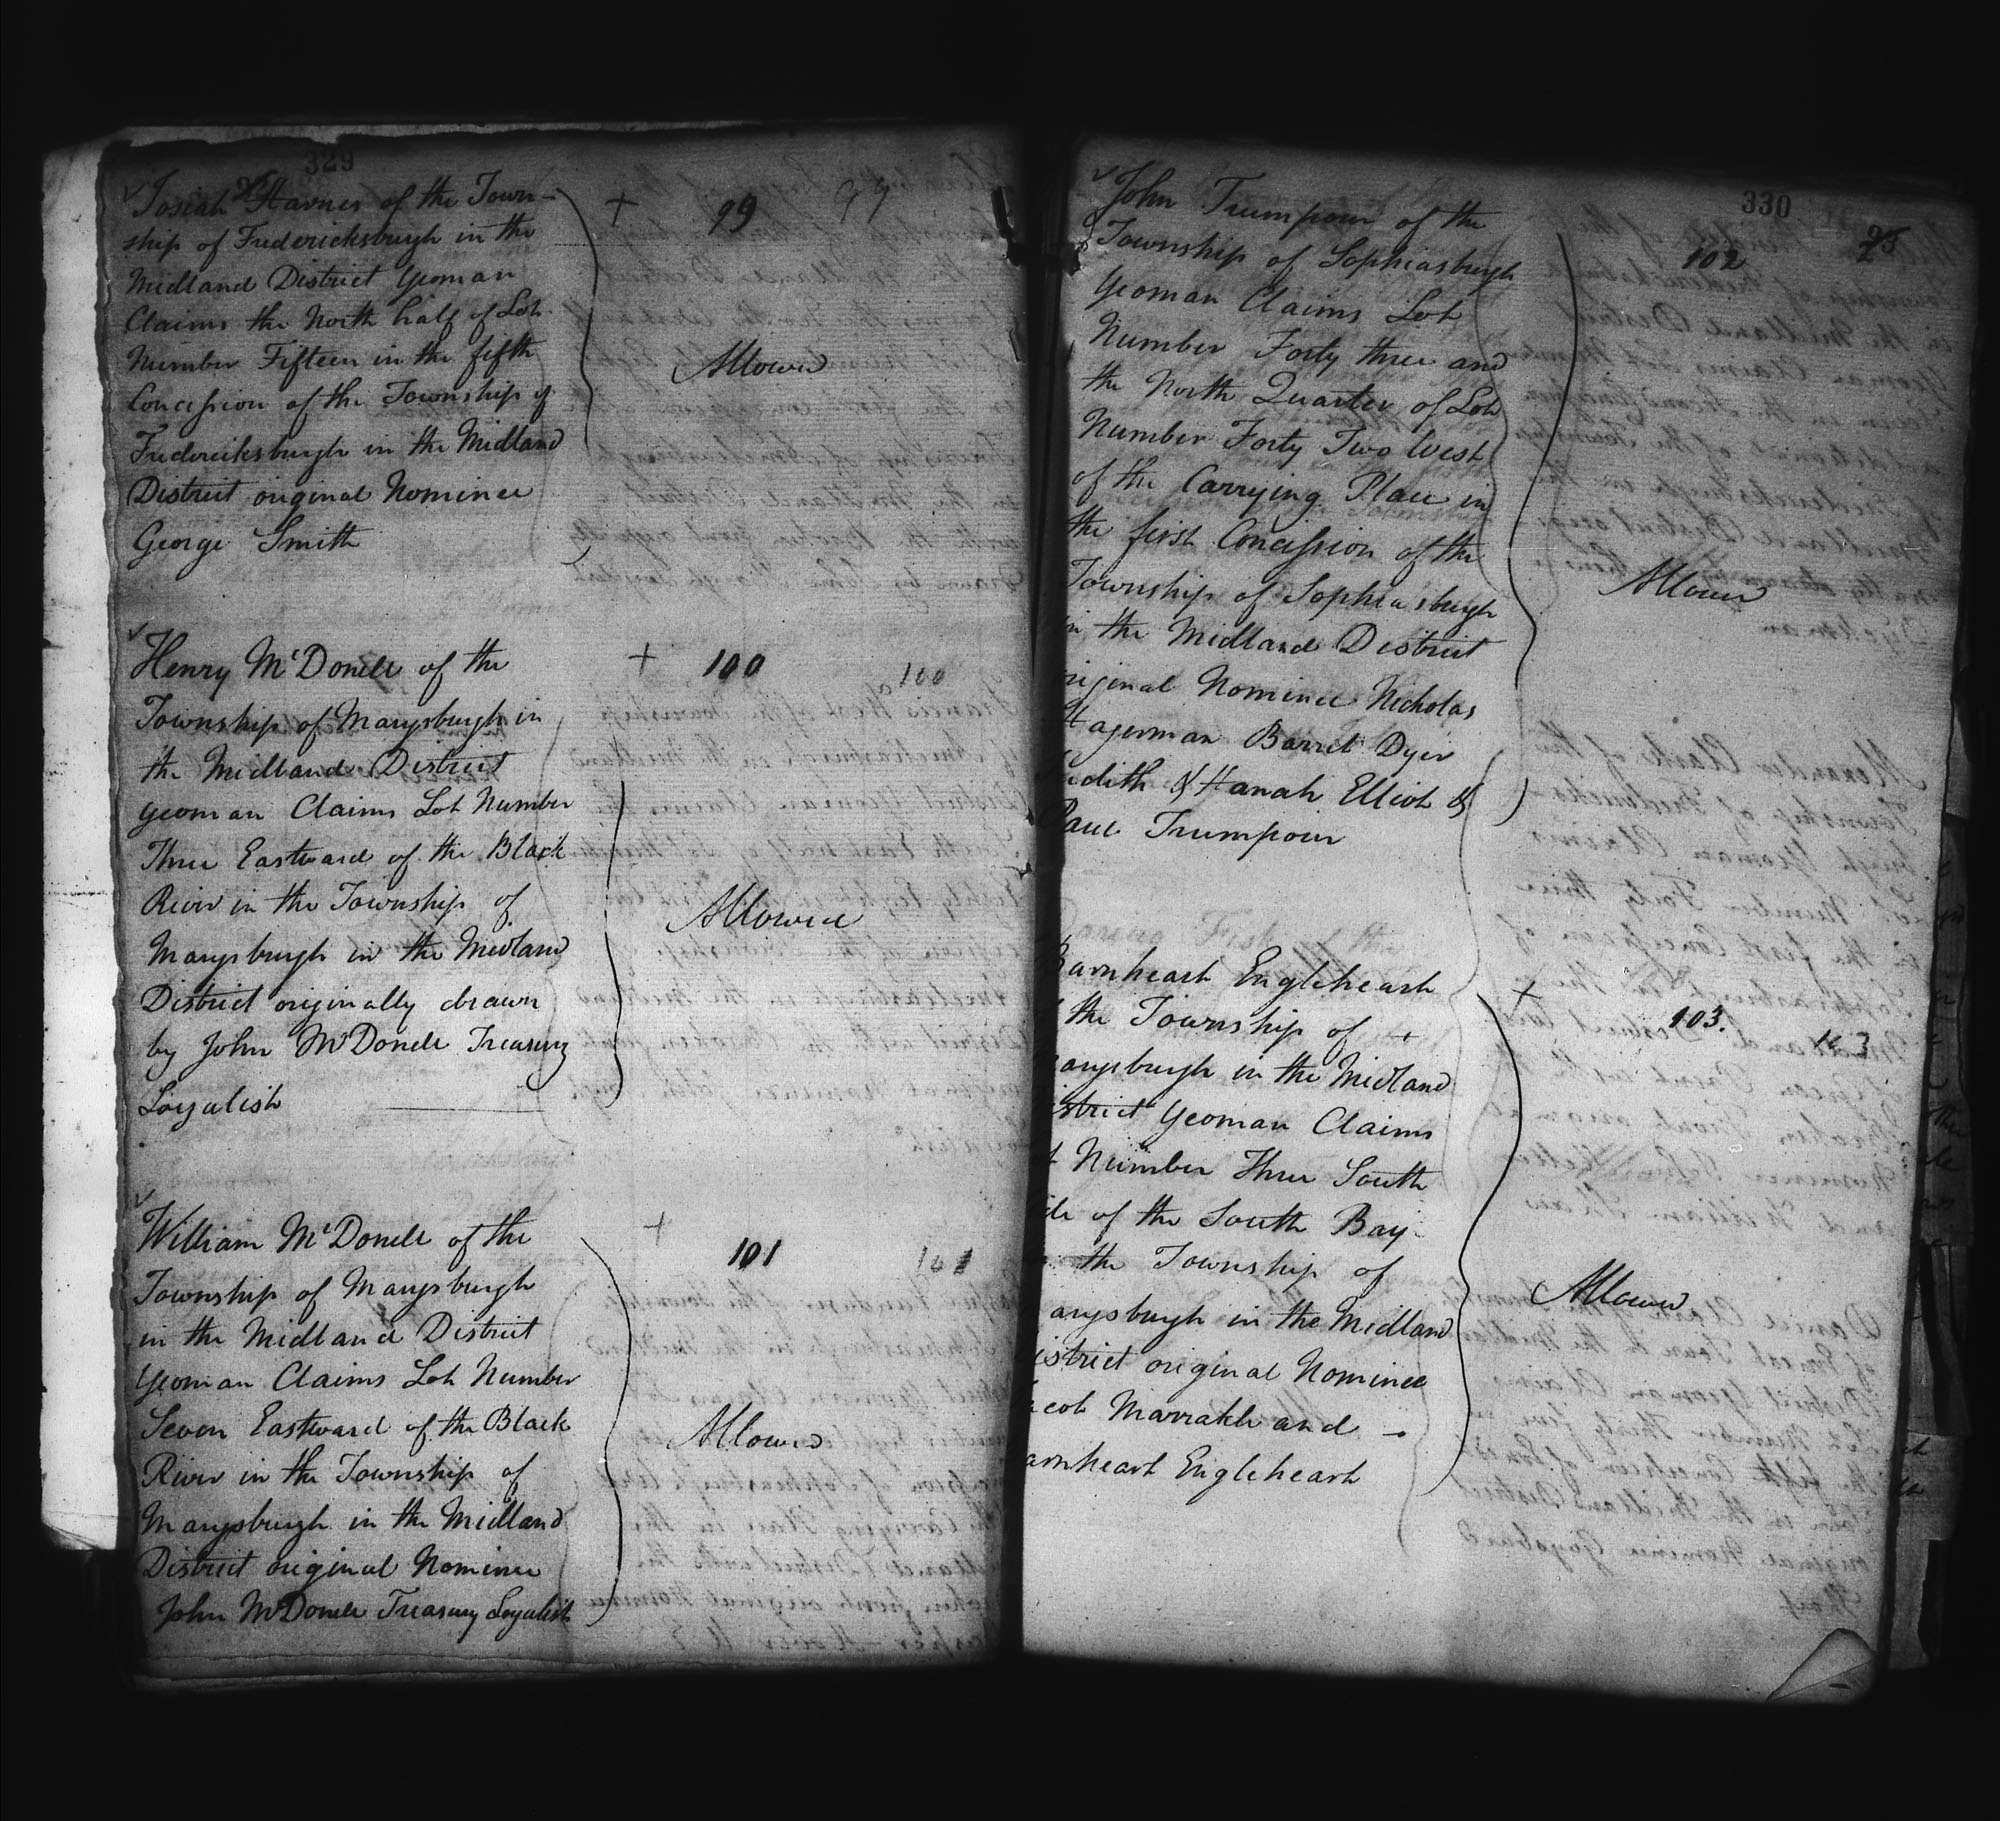 329
Josiah Harnes of the Town-
ship of Fredericksburgh in the
Midland District Yeoman
Claims the North half of Lot
Number Fifteen in the fifth
Concession of the Township of
Fredericksburgh in the Midland
District original Nominee
George Smith
+ 99 99
Allowed
Henry McDonell of the
Township of Marysburgh in
the Midland District
Yeoman Claims Lot Number
Three Eastward of the Black
River in the Township of
Marysburgh in the Midland
District originally drawn
by John McDonell Treasury
Loyalist
+ 100 100
Allowed
William McDonell of the
Township of Marysburgh
in the Midland District
Yeoman Claims Lot Number
Seven Eastward of the Black
River in the Township of
Marysburgh in the Midland
District original Nominee
John McDonell Treasury Loyalist
+ 101 101
Allowed
330
John Trumpour of the
Township of Sophiasburgh
Yeoman Claims Lot
Number Forty three and
the North Quarter of Lot
Number Forty Two West
of the Carrying Place in
the first Concession of the
Township of Sophiasburgh
in the Midland District
original Nominee Nicholas
Hagerman Barret Dyer
Judith & Hanah Elliot &
Paul Trumpour
102
Allowed
Barnheart Engleheart
the Township of
arysburgh in the Midland
istrict Yeoman Claims
t Number Three South
de of the South Bay
the Township of
arysburgh in the Midland
istrict original Nominee
acob Marrakle and
arnheart Engleheart
+ 103. 103
Allowed